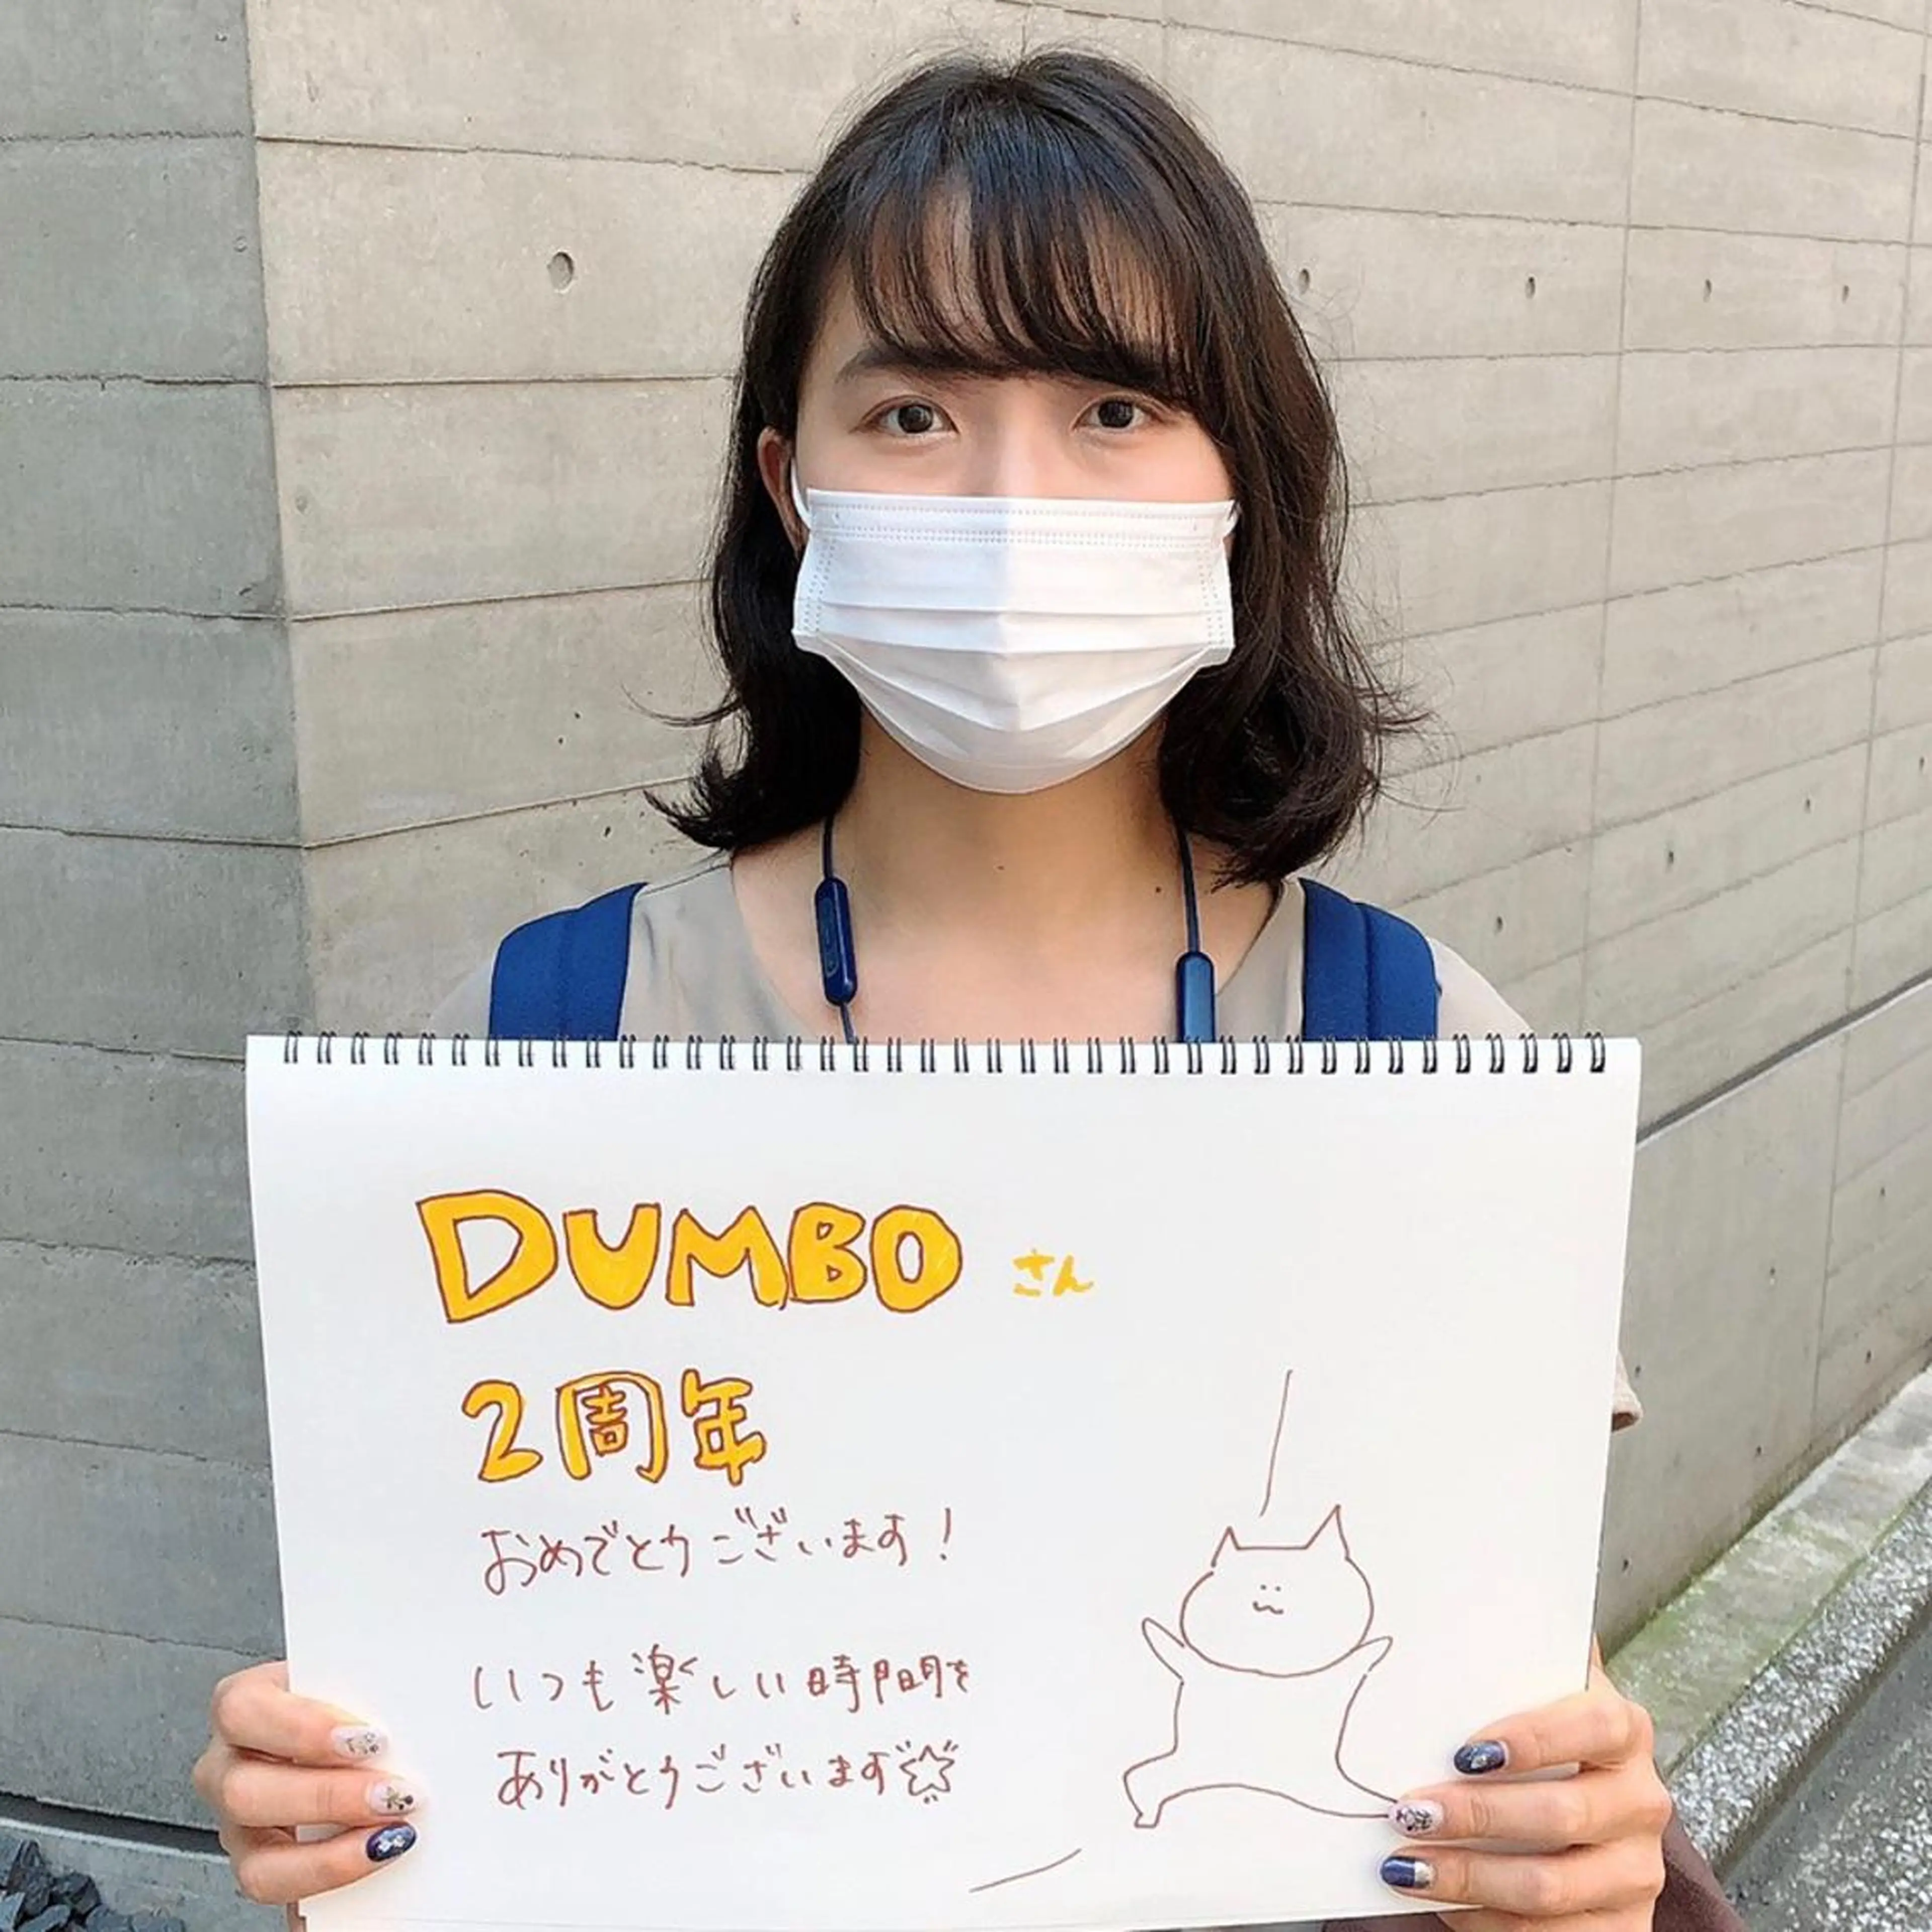 DUMBO さん
2周年
おめでとうございます!
いつも楽しい時間を
ありがとうございます☆